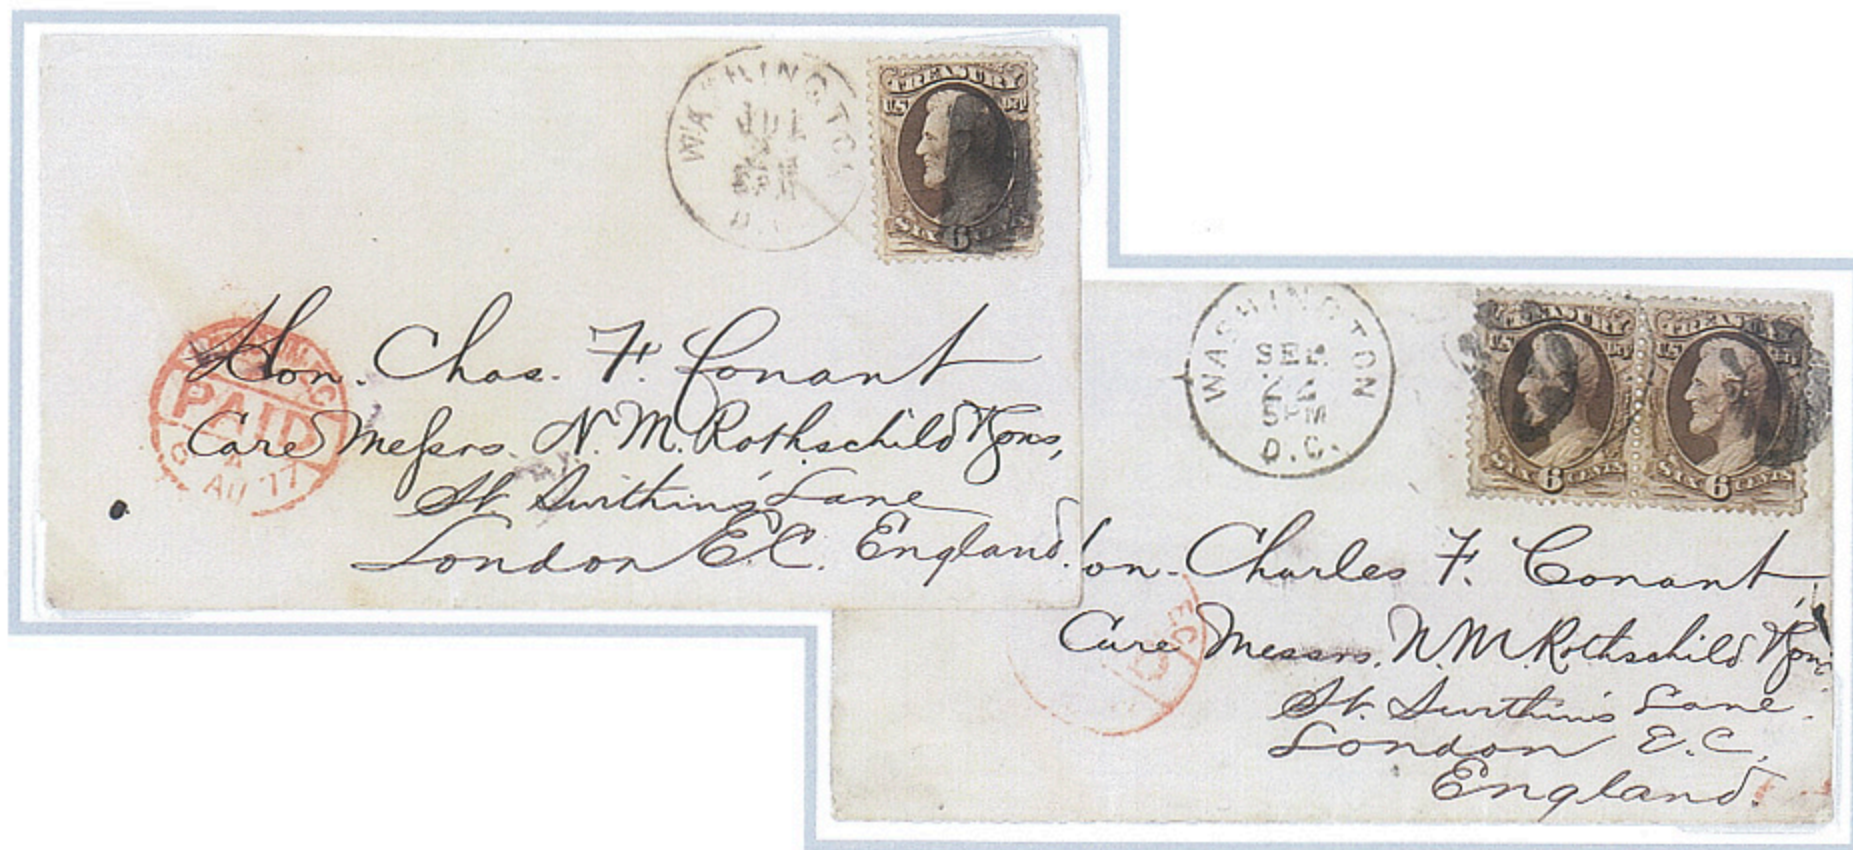 WASHINGTON
JUL
D.C.
TREASURY
U.S. DPT
SIX 6 CENTS
Hon. Chas. F. Conant
PAID
Care Messrs. N. M. Rothschild & Sons,
AU 77
St. Swithin's Lane
London E.C. England.
WASHINGTON
SEP
5PM
D.C.
TREASURY TREASURY
U.S. DPT U.S.
SIX 6 CENTS SIX 6 CENTS
on. Charles F. Conant,
EC
Care Messrs. N. M. Rothschild & Sons
St. Swithin's Lane.
London E.C.
England.